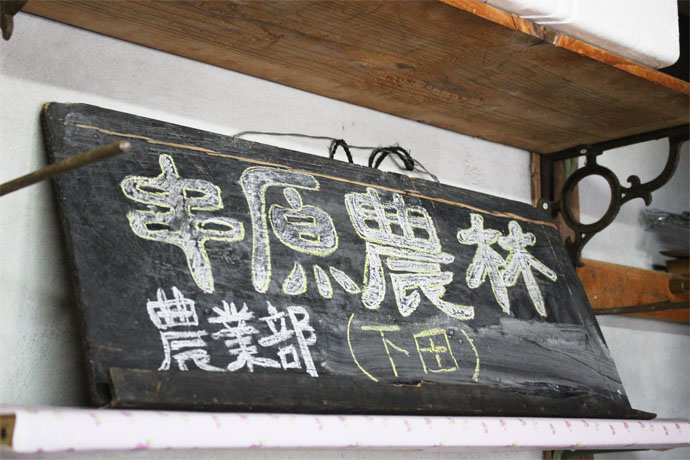 幸原農林
農業部(下田)